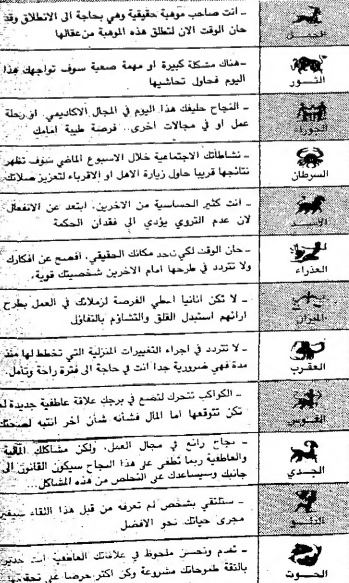 ـ انت صاحب موهبة حقيقية وهي بحاجة الى الانطلاق وقد
حان الوقت الان لتطلق هذه الموهبة من عقالها
الحمل
ـ هناك مشكلة كبيرة او مهمة صعبة سوف تواجهك هذا
اليوم فحاول تحاشيها
الثور
ـ النجاح حليفك هذا اليوم في المجال الاكاديمي، او رحلة
عمل او في مجالات اخرى. فرصة طيبة امامك
الجوزاء
ـ نشاطاتك الاجتماعية خلال الاسبوع الماضي سوف تظهر
نتائجها قريبا حاول زيارة الاهل او الاقرباء لتعزيز صلاتك
السرطان
ـ انت كثير الحساسية من الاخرين. ابتعد عن الانفعال
لان عدم التروي يؤدي الى فقدان الحكمة
الاسد
ـ حان الوقت لكي تجد مكانك الحقيقي، افصح عن افكارك
ولا تتردد في طرحها امام الاخرين شخصيتك قوية.
العذراء
ـ لا تكن انانيا اعطي الفرصة لزملائك في العمل بطرح
ارائهم استبدل القلق والتشاؤم بالتفاؤل
الميزان
ـ لا تتردد في اجراء التغييرات المنزلية التي تخطط لها منذ
مدة فهي ضرورية جدا انت في حاجة الى فترة راحة وتأمل
العقرب
ـ الكواكب تتحرك لتضع في برجك علاقة عاطفية جديدة لم
تكن تتوقعها اما المال فشأنه شأن اخر انتبه لصحتك
القوس
ـ نجاح رائع في مجال العمل، ولكن مشاكلك المالية
والعاطفية ربما تطغى على هذا النجاح سيكون القانون الى
جانبك وسيساعدك على التخلص من هذه المشاكل
الجدي
ـ ستلتقي بشخص لم تعرفه من قبل هذا اللقاء سيغير
مجرى حياتك نحو الافضل
الدلو
ـ تقدم وتحسن ملحوظ في علاقاتك العاطفية انت جدير
بالثقة طموحاتك مشروعة وكن اكثر حرصا على تحقيقها
الحوت